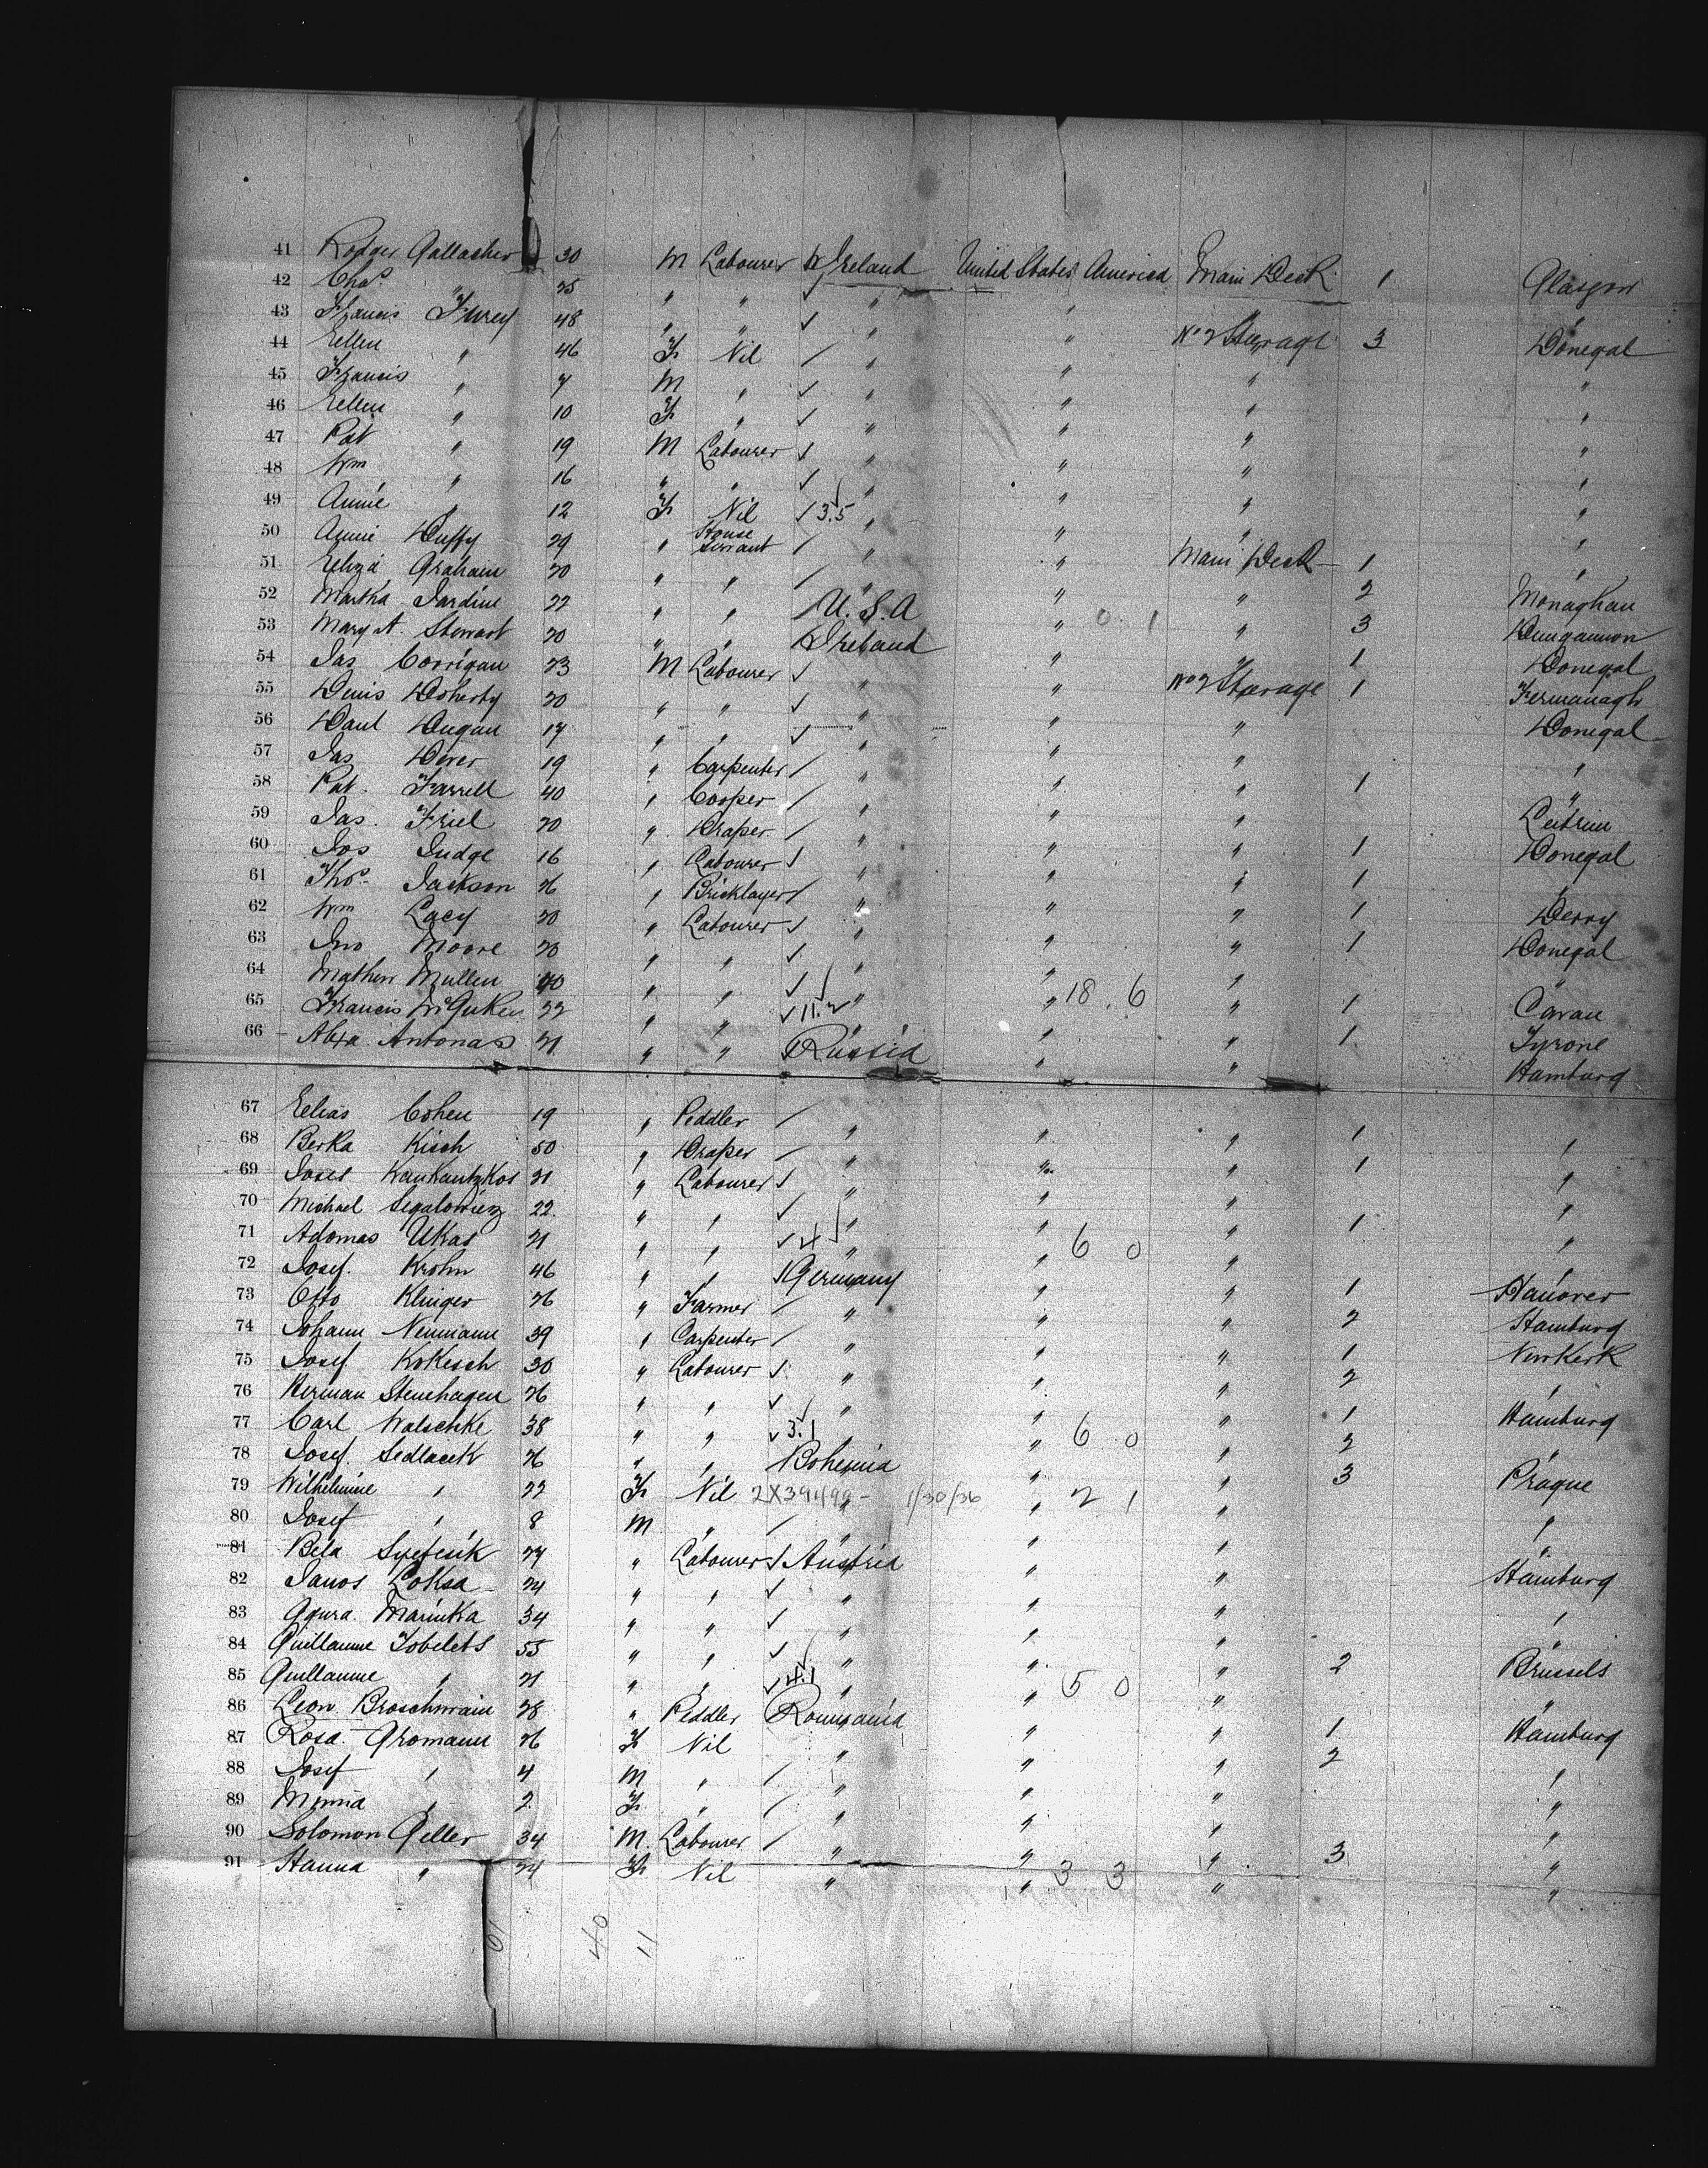 41 Rodger Gallagher 30 M Labourer Ireland United States America Main Deck 1 Glasgow
42 Chas. " 25 " " ✓ " " " "
43 Francis Furey 48 " " ✓ " " No 2 Steerage 3 Donegal
44 Ellen " 46 F Nil / " " " "
45 Francis " 7 M " ✓ " " " "
46 Ellen " 10 F " ✓ " " " "
47 Pat " 19 M Labourer ✓ " " " "
48 Wm " 16 " " ✓ " " " "
49 Annie " 12 F Nil / 3.5 " " " "
50 Annie Duffy 29 " House Servant / " " Main Deck 1 "
51 Eliza Graham 20 " " / " " " 2 Monaghan
52 Martha Jardine 22 " " U.S.A " 0 1 " 3 Dungannon
53 Mary A. Stewart 20 " " Ireland " " 1 Donegal
54 Jas Corrigan 23 M Labourer ✓ " " No 2 Steerage 1 Fermanagh
55 Denis Doherty 20 " " ✓ " " " Donegal
56 Danl Dugan 17 " " ✓ " " " "
57 Jas Dever 19 " Carpenter / " " " 1 "
58 Pat. Farrell 40 " Cooper / " " " Leitrim
59 Jas. Friel 20 " Draper / " " " 1 Donegal
60 Jos Judge 16 " Labourer ✓ " " " 1 "
61 Thos. Jackson 26 " Bricklayer / " " " 1 Derry
62 Wm Lacy 20 " Labourer ✓ " " " 1 Donegal
63 Jno Moore 20 " " ✓ " " " "
64 Mathew Mullen 40 " " ✓ " " 18 . 6 " 1 Cavan
65 Francis 22 " " ✓ 11.2 " " " 1 Tyrone
66 Alexa. Antonas 21 " " Russia " " Hamburg
67 Elias Cohen 19 " Peddler / " " " 1 "
68 Berka Kisch 50 " Draper / " " " 1 "
69 Joses 21 " Labourer ✓ " " " "
70 Michael Segalowicz 22 " " ✓ " " " 1 "
71 Adomas Ukas 21 " " ✓ 4 " " 6 0 " "
72 Josef. Krohn 46 " " Germany " " 1 Hanover
73 Otto Klinger 26 " Farmer / " " " 2 Hamburg
74 Johann Neumann 39 " Carpenter / " " " 1 Newkerk
75 Josef Kokesch 30 " Labourer ✓ " " " 2 "
76 Herman Stenehagen 26 " " ✓ " " " 1 Hamburg
77 Carl Walschke 38 " " ✓ 3.1 " " 6 0 " 2 "
78 Josef. Sedlacek 26 " " Bohemia " " 3 Prague
79 Wilhelmine " 22 F Nil 2X39499- " 1/30/36 " 2 1 " "
80 Josef " 8 M " / " " " "
81 Bela 27 " Labourer ✓ Austria " " Hamburg
82 Janos Loksa 24 " " ✓ " " " "
83 Marinka 34 " " ✓ " " " "
84 Guillaume 55 " " ✓ " " " 2 Brussels
85 Guillaume " 21 " " ✓ 4.1 " " 5 0 " "
86 Leon Broschwain 28 " Peddler Roumania " " 1 Hamburg
87 Rosa Gromann 26 F Nil " " " 2 "
88 Josef " 4 M " / " " " "
89 Minna " 2 F " / " " " "
90 Solomon Geller 34 M. Labourer / " " " 3 "
91 Hanna " 24 F Nil " " 3 3 " "
40 11